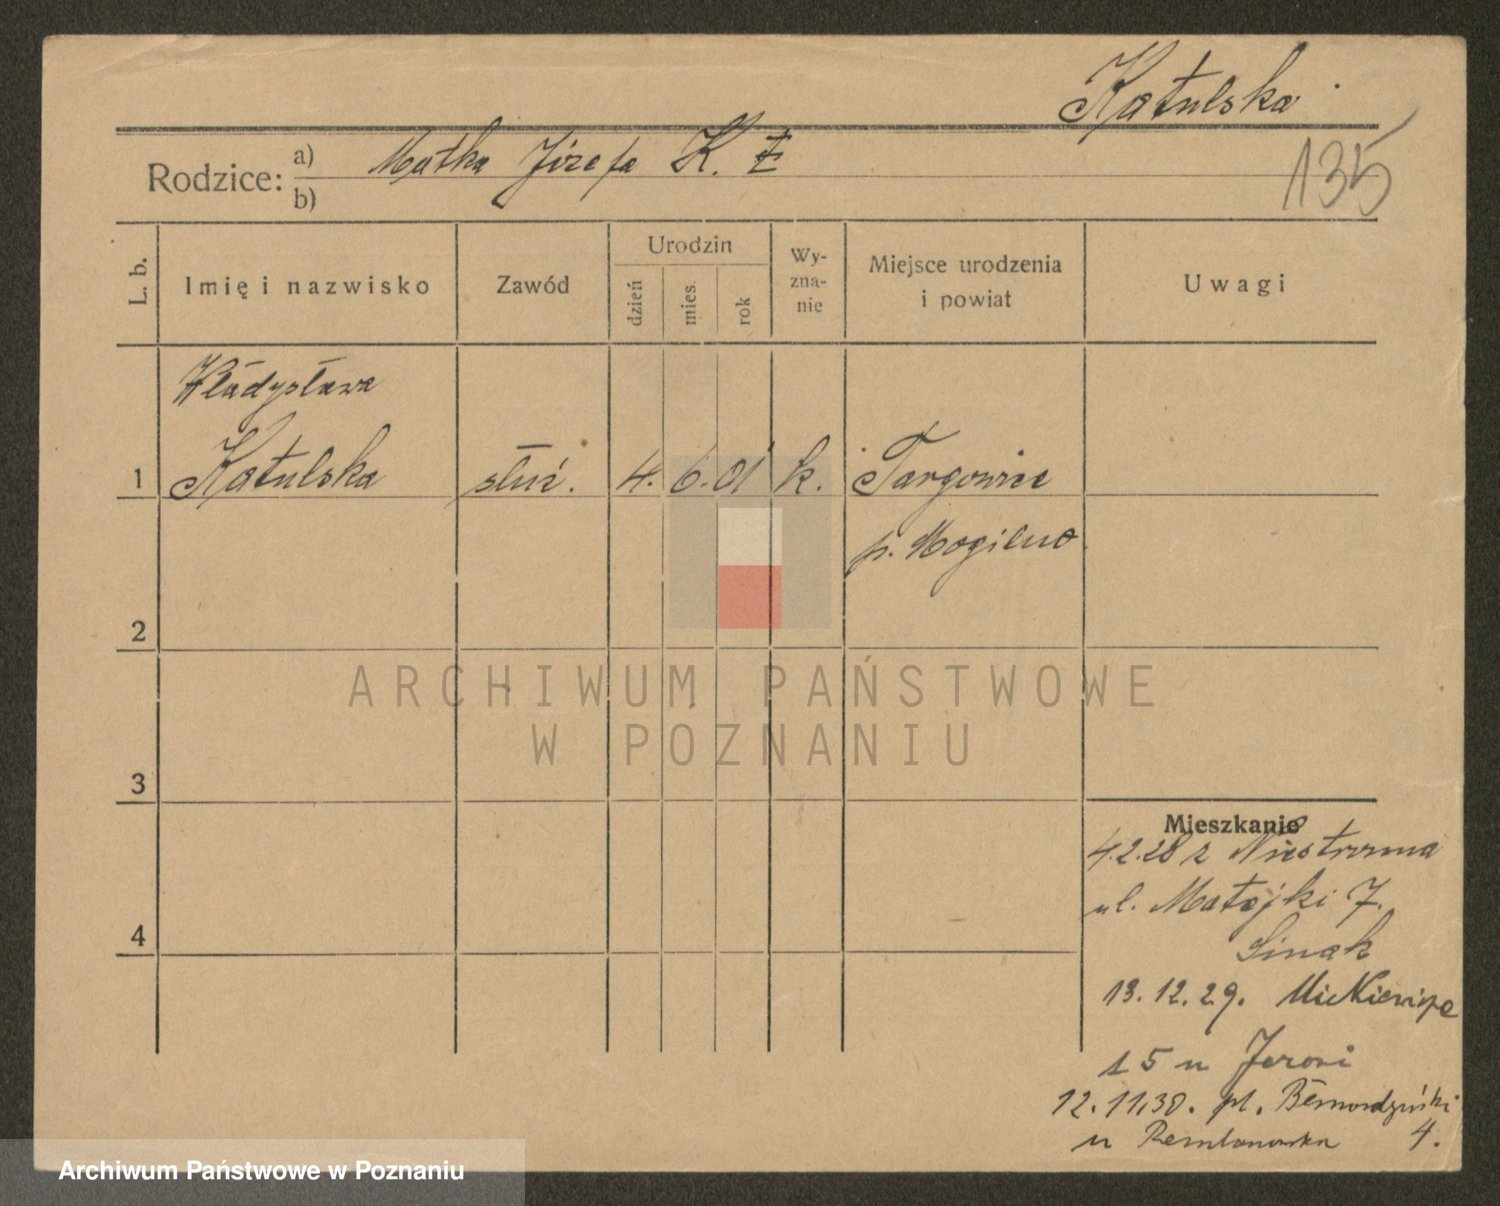 Katulska
135
Rodzice: a) Matka Józefa K. Ł
b)
L. b.
Imię i nazwisko
Zawód
Urodzin
dzień
mies.
rok
Wy-
zna-
nie
Miejsce urodzenia
i powiat
Uwagi
Władysława
1 Katulska służ. 4. 6. 01 k. Targowice
p. Mogilno
2
ARCHIWUM PAŃSTWOWE
W POZNANIU
3
Mieszkanie
4.2.28 z
ul. Matejki 7.
4
13.12.29. Mickiewicza
15 u
12.11.30. pl. Bernardyński
u 4.
Archiwum Państwowe w Poznaniu